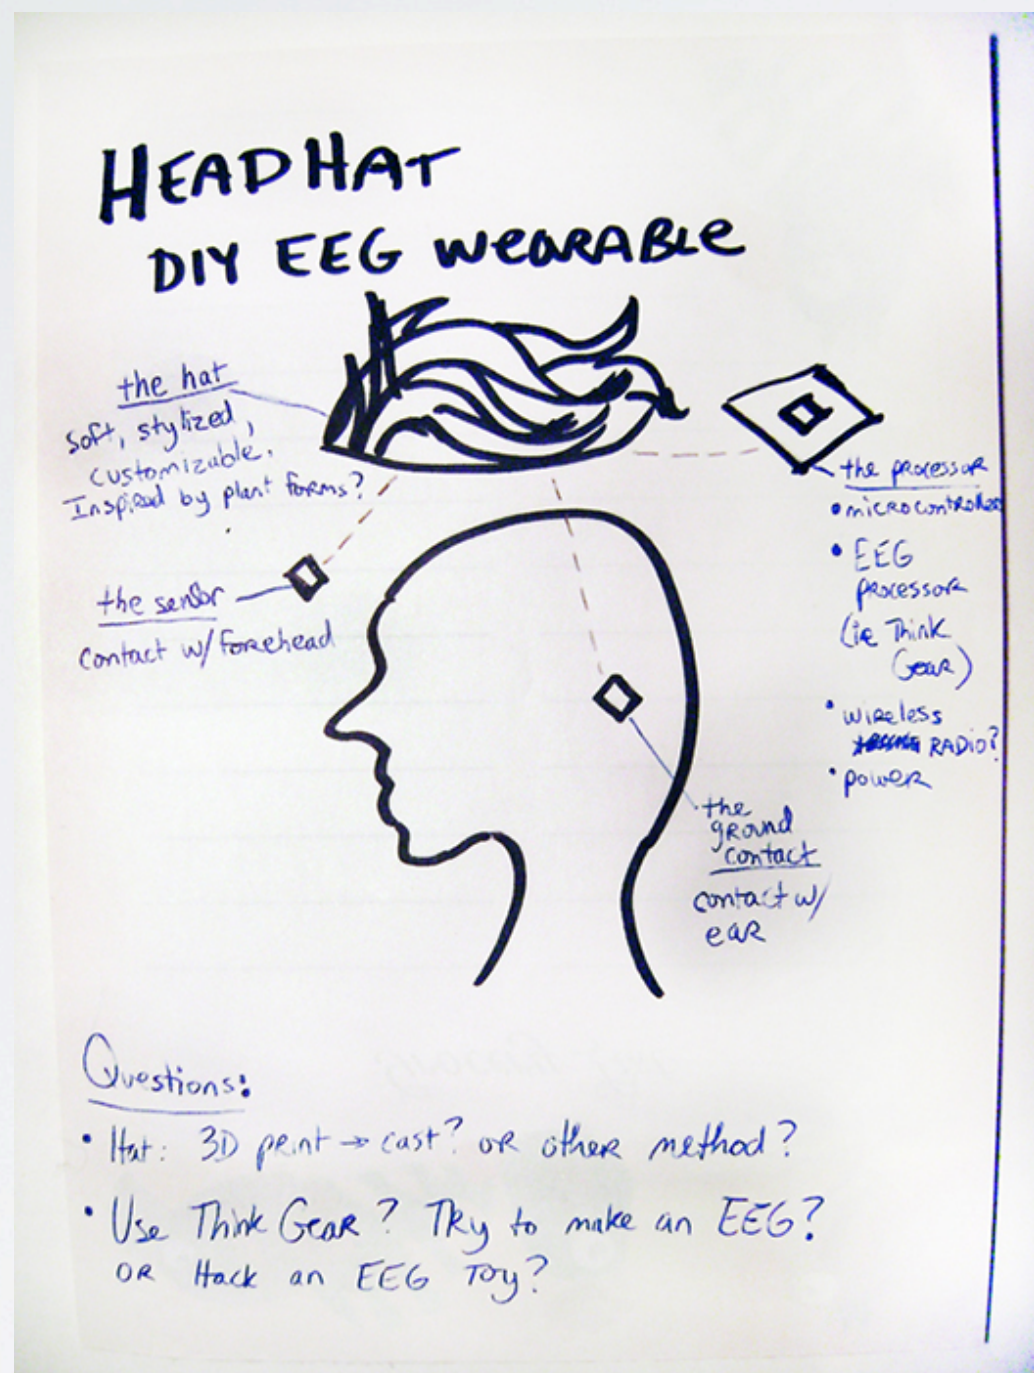 HEADHAT
DIY EEG WEARABLE
the hat
soft, stylized,
customizable.
Inspired by plant forms?
the sensor
contact w/ forehead
the processor
• microcontroller
• EEG
processor
(ie Think
Gear)
• wireless
RADIO?
• power
the
ground
contact
contact w/
ear
Questions:
• Hat: 3D print → cast? or other method?
• Use Think Gear? Try to make an EEG?
OR Hack an EEG Toy?